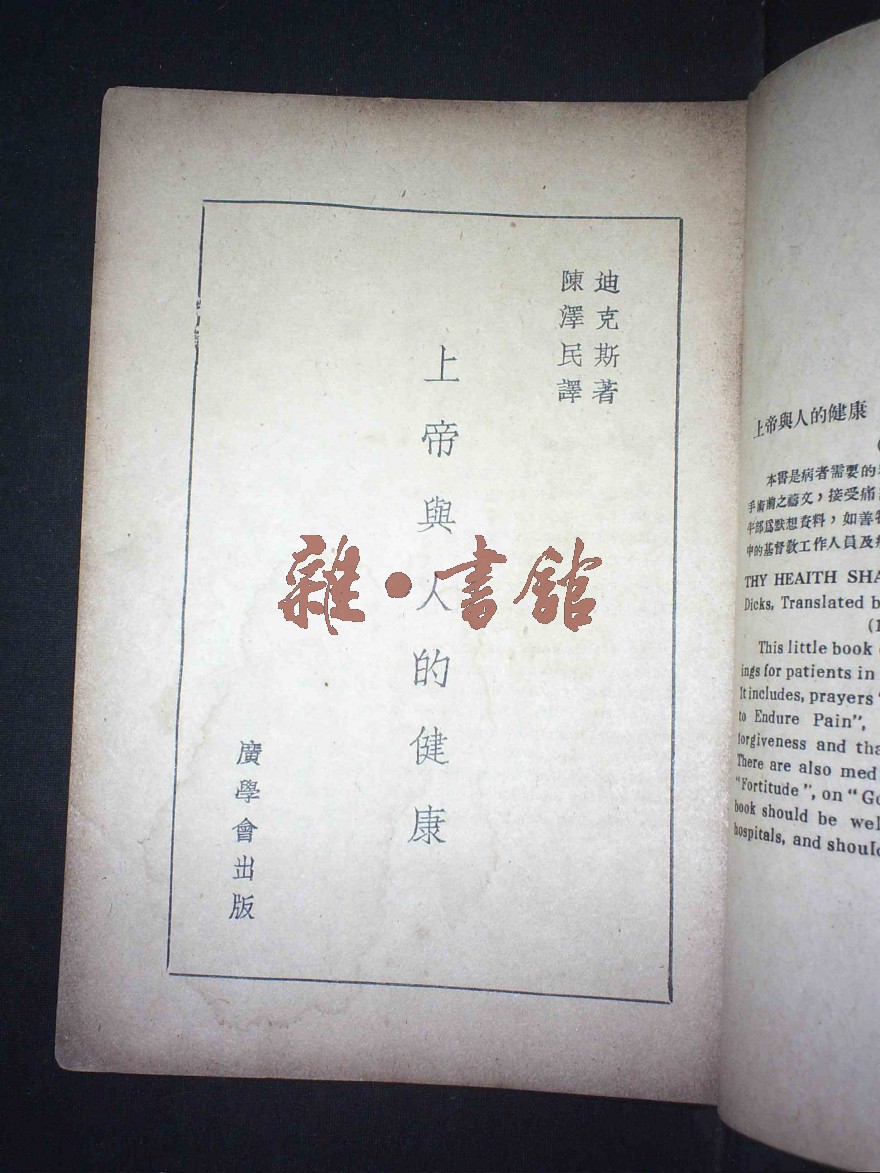 迪克斯著
陳澤民譯
上帝與人的健康
廣學會出版
雜·書館
上帝與人的健康
(
本書是病者需要的
手術前之禱文，接受痛
半部爲默想資料，如善
中的基督教工作人員及
THY HEAITH SHA
Dicks, Translated b
(1
This little book
ings for patients in
It includes, prayers "
to Endure Pain",
forgiveness and tha
There are also med
"Fortitude", on "Go
book should be wel
hospitals, and should